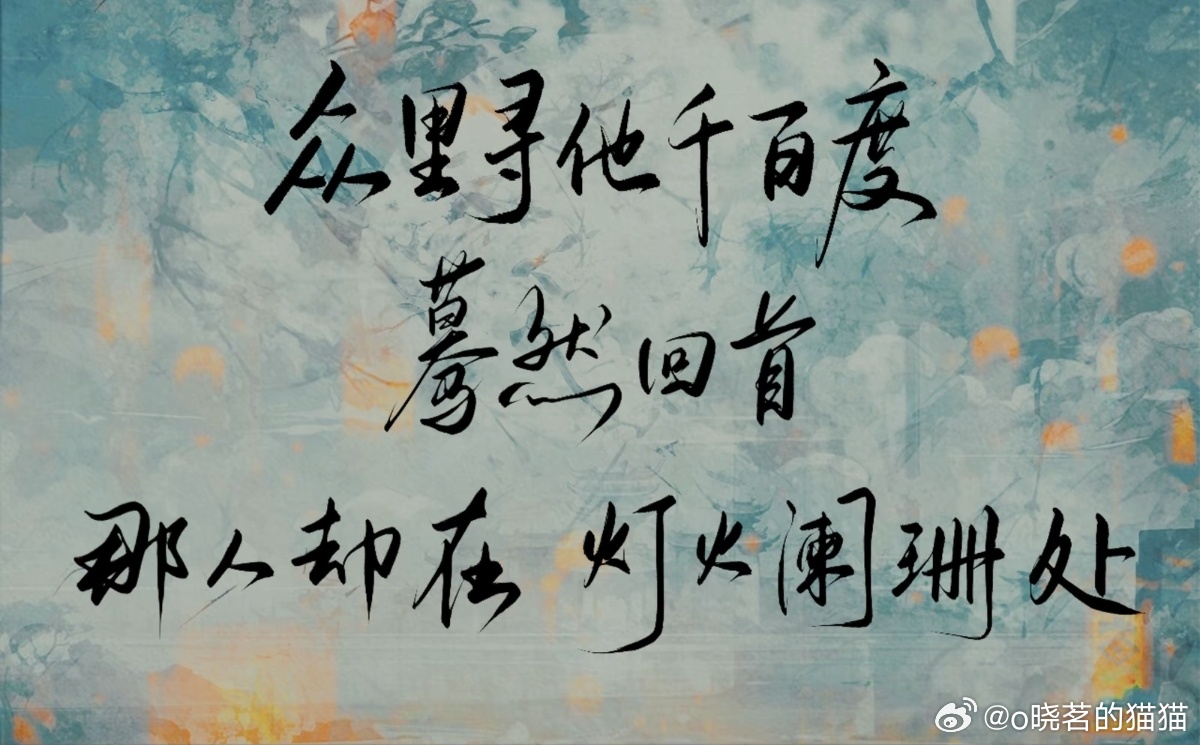 众里寻他千百度
蓦然回首
那人却在 灯火阑珊处
@o晓茗的猫猫